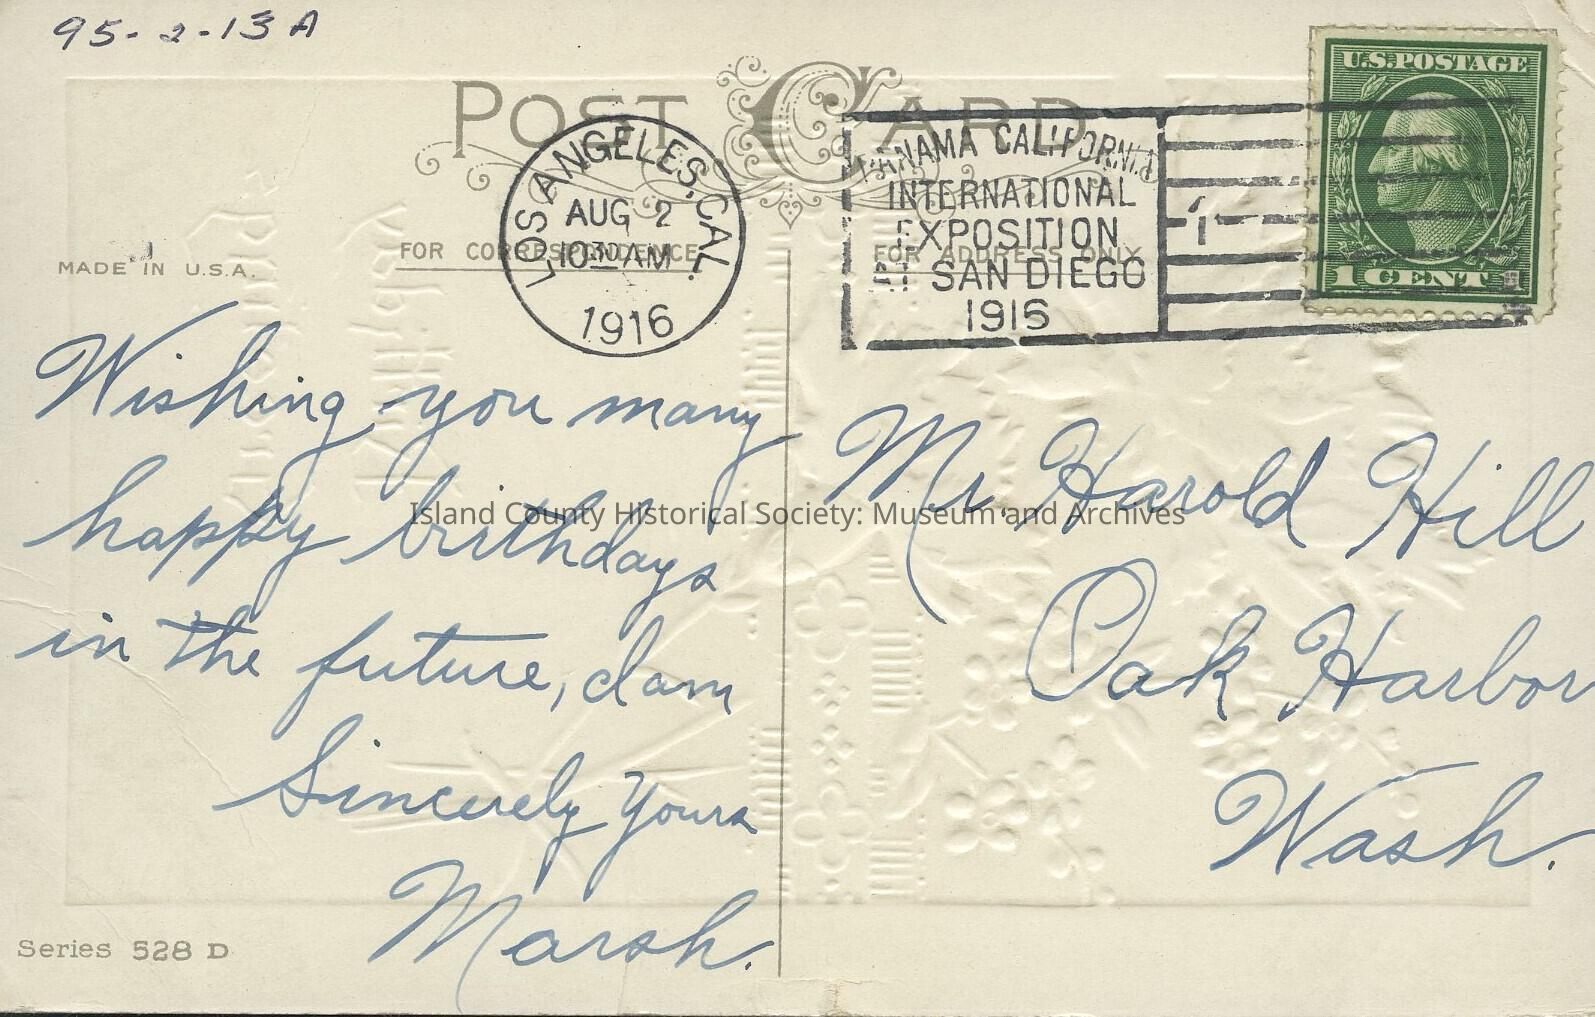 95-2-13A
POST CARD
LOS ANGELES, CAL.
AUG 2
10 30 AM
1916
PANAMA CALIFORNIA
INTERNATIONAL
EXPOSITION
AT SAN DIEGO
1916
1
U.S. POSTAGE
1 CENT 1
MADE IN U.S.A.
FOR CORRESPONDENCE
FOR ADDRESS ONLY
Wishing you many
happy birthdays
in the future, I am
Sincerely Yours
Marsh.
Mr. Harold Hill
Oak Harbor
Wash.
Island County Historical Society: Museum and Archives
Series 528 D